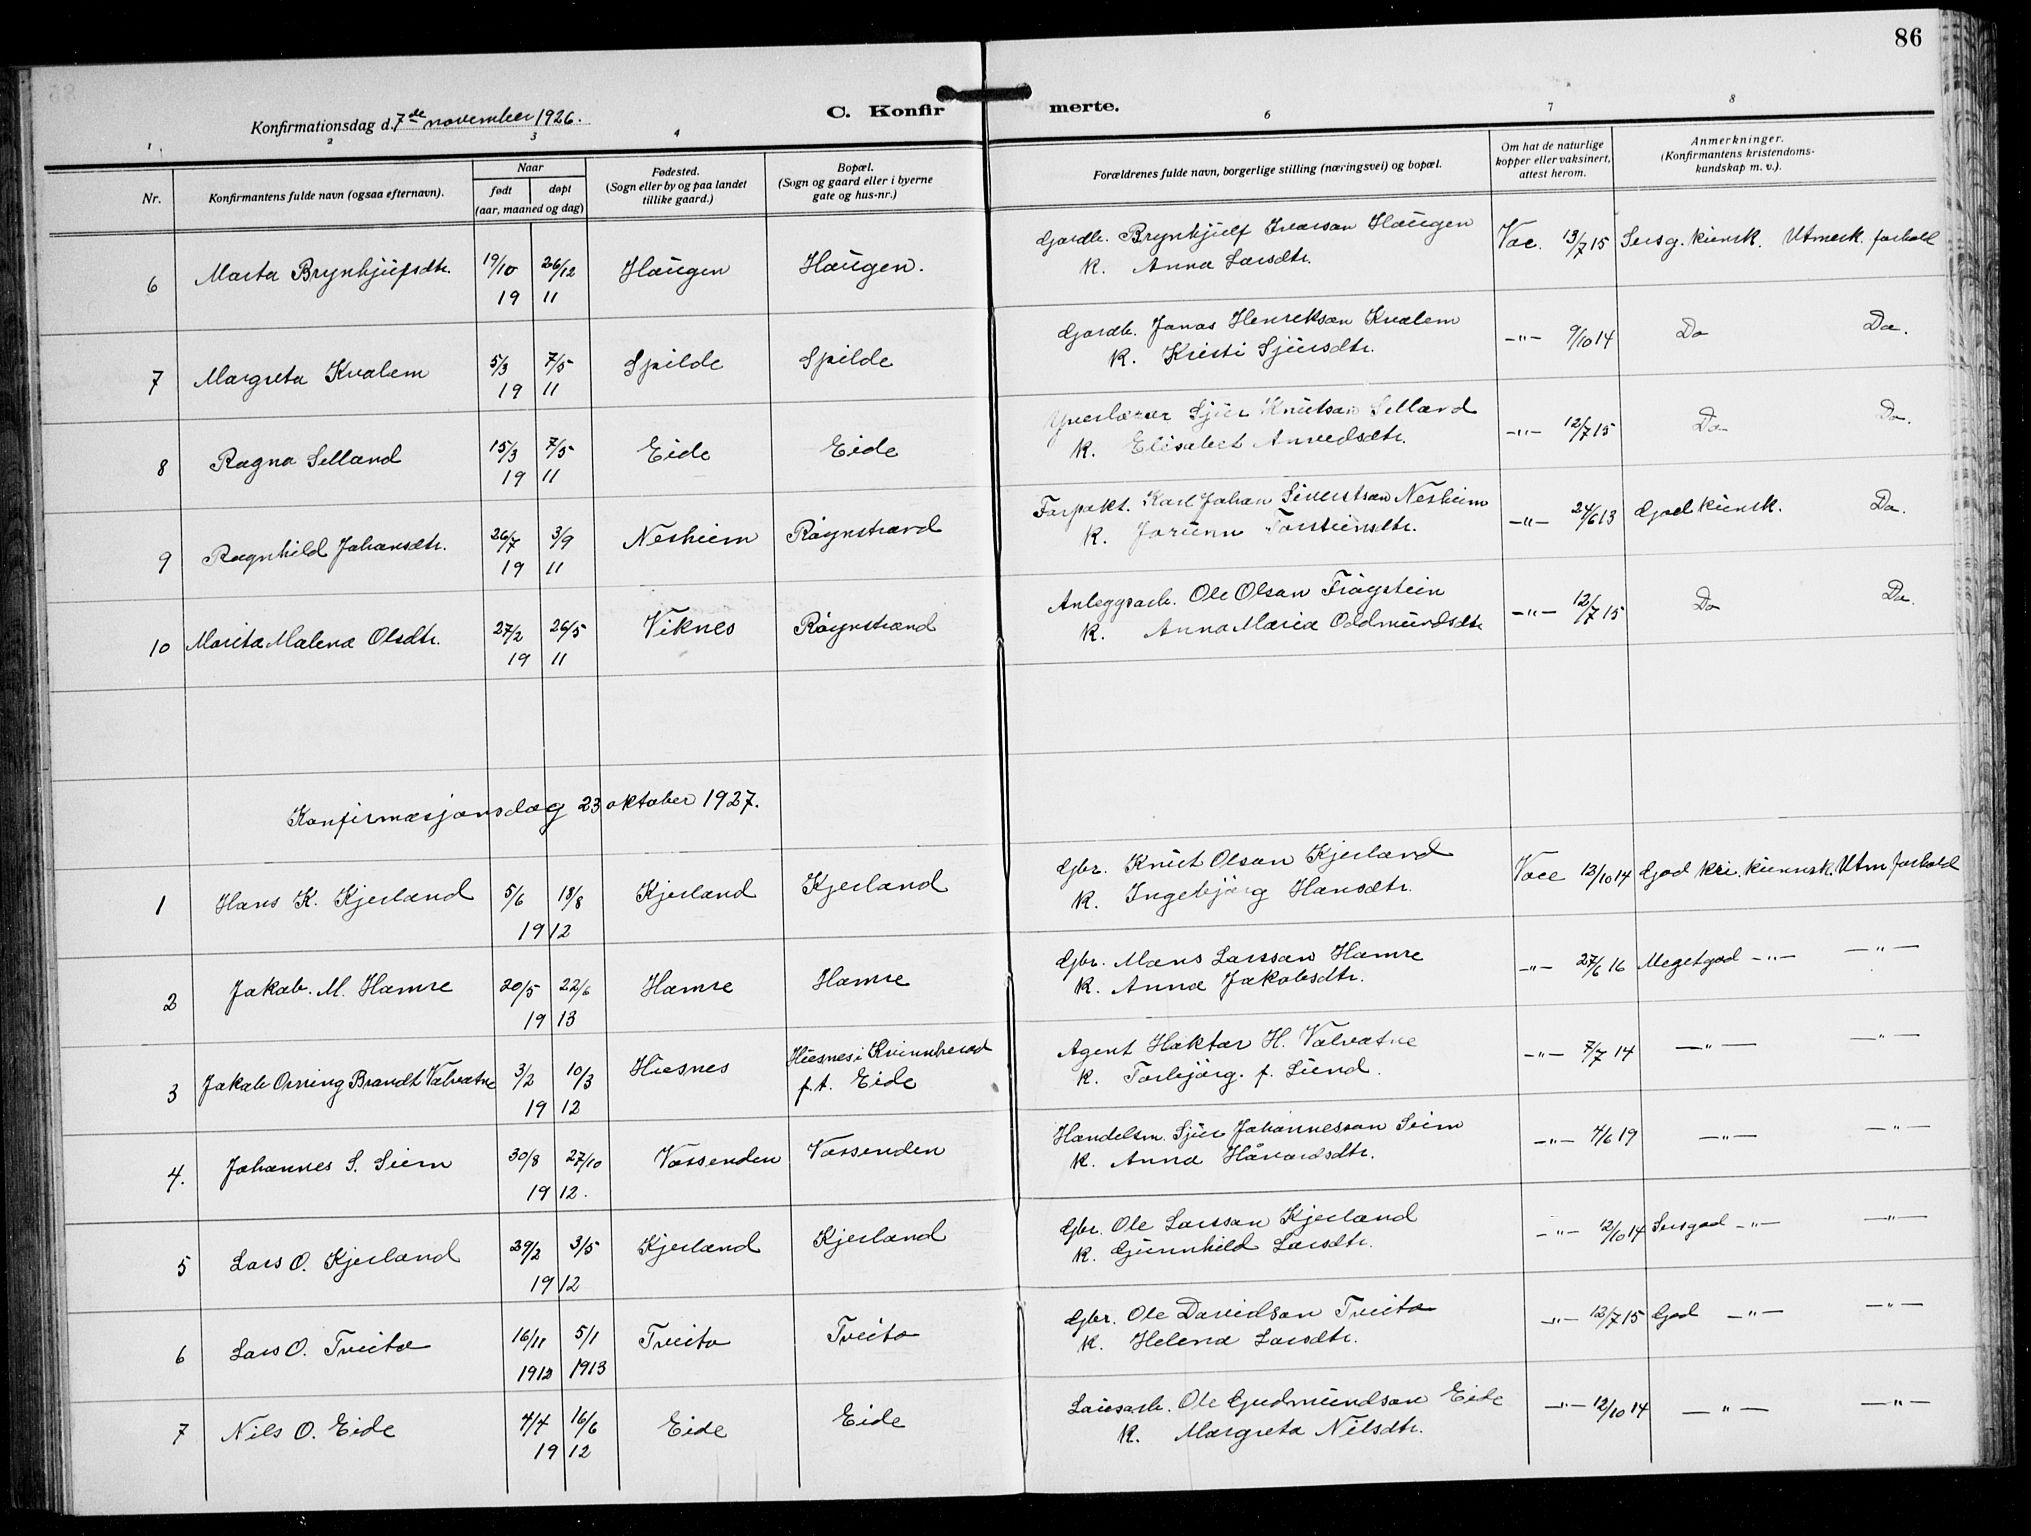 86
C. Konfirmerte.
Konfirmationsdag d. 7de november 1926.
1 2 3 4 6 7 8
Nr. Konfirmantens fulde navn (ogsaa efternavn). Naar født døpt (aar, maaned og dag) Fødested. (Sogn eller by og paa landet tillike gaard.) Bopæl. (Sogn og gaard eller i byerne gate og hus-nr.) Forældrenes fulde navn, borgerlige stilling (næringsvei) og bopæl. Om hat de naturlige kopper eller vaksinert, attest herom. Anmerkninger. (Konfirmantens kristendomskundskap m. v.).
6 Marta Brynhjulfsdtr. 19/10 26/12 19 11 Haugen Haugen. Gardb. Brynhjulf Ivarson Haugen Vac. 13/7 15 Sersg. kunsk. Utmerk. forhold
K. Anna Larsdtr.
7 Margreta Kvalem 5/3 7/5 19 11 Spilde Spilde Gardb. Jonas Henrikson Kvalem -"- 9/10 14 Do Do.
K. Kristi Sjursdtr.
8 Ragna Selland 15/3 7/5 19 11 Eide Eide Sjur Knutson Selland -"- 12/7 15 Do Do.
K. Elisabet
9 Ragnhild Johansdtr. 26/7 3/9 19 11 Nesheim Røynstrand Forpakt. Karl Johan Sivertson Nesheim -"- 24/6 13 God kunsk. Do.
K. Jorunn Torsteinsdtr.
10 Marita Malena Olsdtr. 27/2 26/5 19 11 Viknes Røynstrand Anleggsarb. Ole Olson Trøgstein -"- 12/7 15 Do Do.
K. Anna Maria Oddmundsdtr
Konfirmasjonsdag 23 oktober 1927.
1 Hans K. Kjerland 5/6 18/8 19 12 Kjerland Kjerland Gbr. Knut Olson Kjerland Vacc 12/10 14 God kri. kunnsk. Utm forhold
K. Ingebjørg Hansdtr.
2 Jakob. M. Hamre 20/5 22/6 19 13 Hamre Hamre Gbr. Mons Larsson Hamre -"- 27/6 16 Megetgod -"- -"-
K. Anna Jakobsdtr.
3 Jakob Orning Brandt Valvatne 3/2 10/3 19 12 Husnes Husnes i Kvinnherad p.t. Eide Agent Haktor H. Valvatne -"- 7/7 14 -"- -"-
K. Torbjørg. f. Lund.
4. Johannes S. Seim 30/8 27/10 19 12. Vassenden Vassenden Handelsm. Sjur Johannesson Seim -"- 4/6 19 -"- -"-
K. Anna Håvardsdtr.
5 Lars O. Kjerland 29/2 3/5 19 12 Kjerland Kjerland Gbr. Ole Larsson Kjerland -"- 12/10 14 Sersgod -"- -"-
K. Gunnhild Larsdtr.
6 Lars O. Tveito 16/11 5/1 1912 1913 Tveito Tveito Gbr. Ole Davidson Tveito -"- 12/7 15 God -"- -"-
K. Helena Larsdtr.
7 Nils O. Eide 4/4 16/6 19 12 Eide Eide Lausarb. Ole Gudmundson Eide -"- 12/10 14 -"- -"-
K. Margreta Nilsdtr.